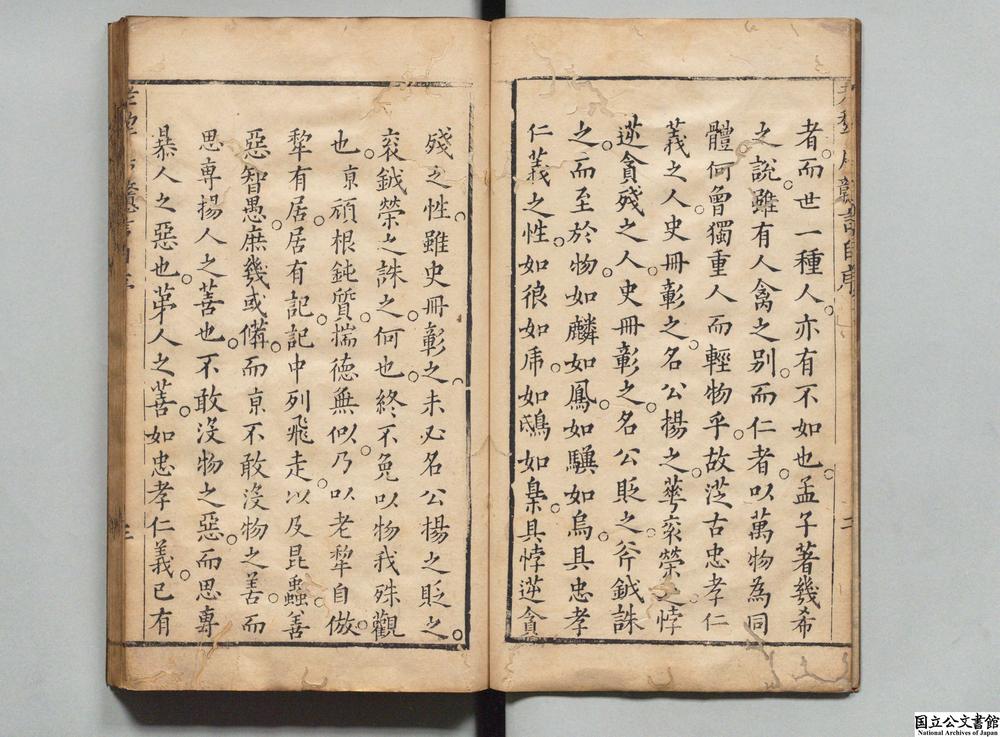 者而世一種人亦有不如也孟子著幾希
之說雖有人禽之别而仁者以萬物為同
體何曾獨重人而輕物乎故從古忠孝仁
義之人史冊彰之名公揚之華衮榮之悖
逆貪殘之人史冊彰之名公貶之斧鉞誅
之而至於物如麟如鳳如騏如烏具忠孝
仁義之性如狼如虎如鴟如梟具悖逆貪
殘之性雖史冊彰之未必名公揚之貶之
衮鉞榮之誅之何也終不免以物我殊觀
也京頑根鈍質揣德無似乃以老犂自倣
犂有居居有記記中列飛走以及昆蟲善
惡智愚庶幾或備而京不敢沒物之善而
思專揚人之善也不敢沒物之惡而思專
暴人之惡也苐人之善如忠孝仁義已有
国立公文書館
National Archives of Japan